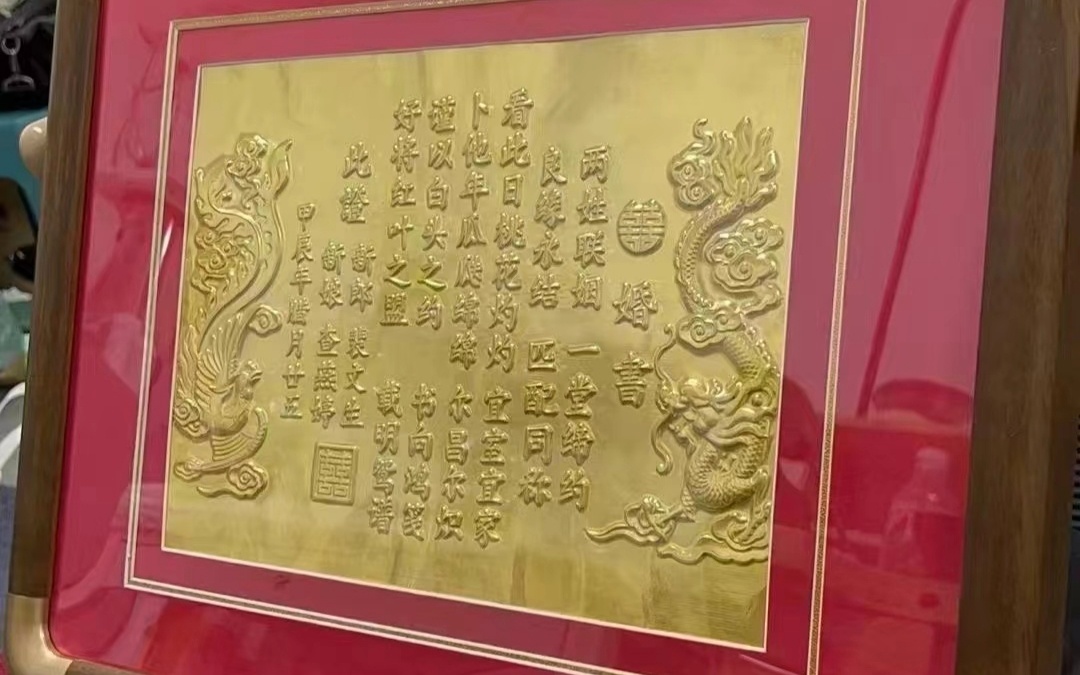 囍 婚書
两姓联姻 一堂缔约
良缘永结 匹配同称
看此日桃花灼灼 宜室宜家
卜他年瓜瓞绵绵 尔昌尔炽
谨以白头之约 书向鸿笺
好将红叶之盟 载明鸳谱
此證
新郎 裴文生
新娘 查燕婷
甲辰年腊月廿五
囍